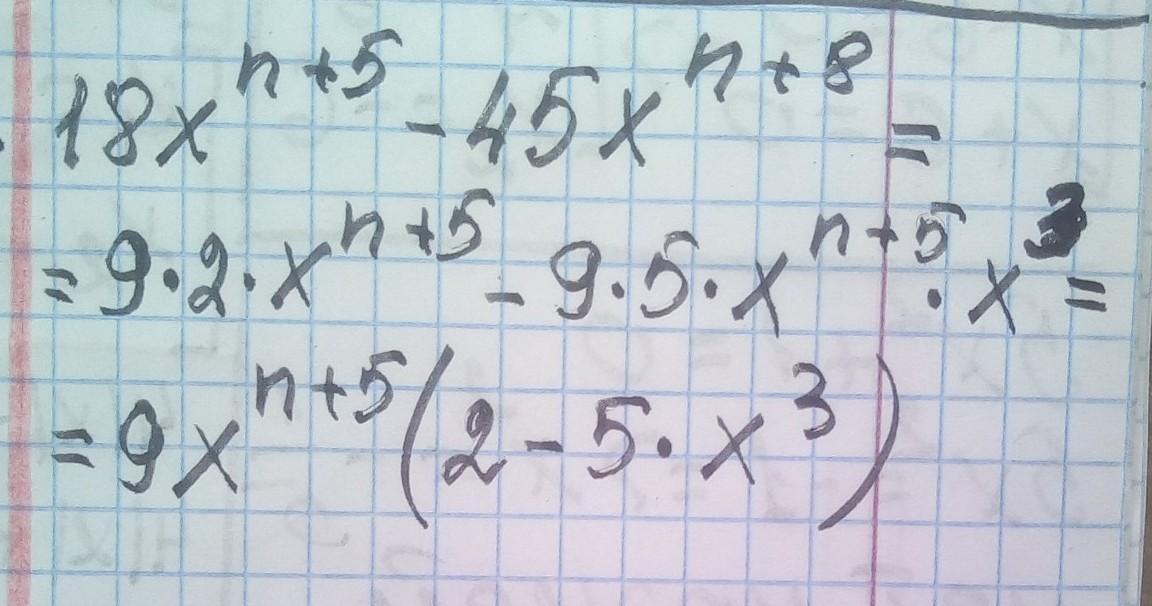 18x^{n+5} - 45x^{n+8} =
= 9·2·x^{n+5} - 9·5·x^{n+5}·x^3 =
= 9x^{n+5}(2 - 5·x^3)